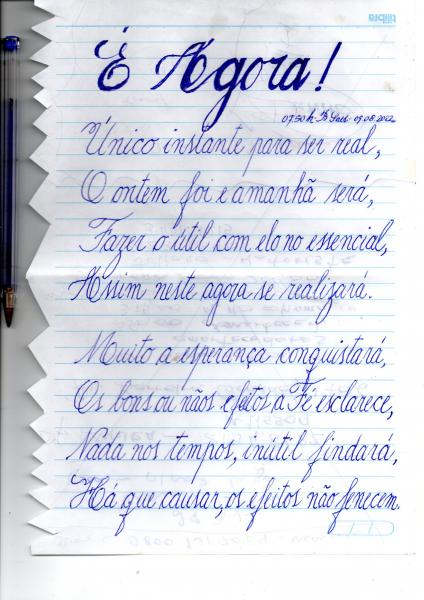 É Agora!
07:30h 09.08.2022
Único instante para ser real,
O ontem foi e amanhã será,
Fazer o útil com elo no essencial,
Assim neste agora se realizará.
Muito a esperança conquistará,
Os bons ou nãos efeitos a Fé esclarece,
Nada nos tempos, inútil findará,
Há que causar, os efeitos não fenecem.